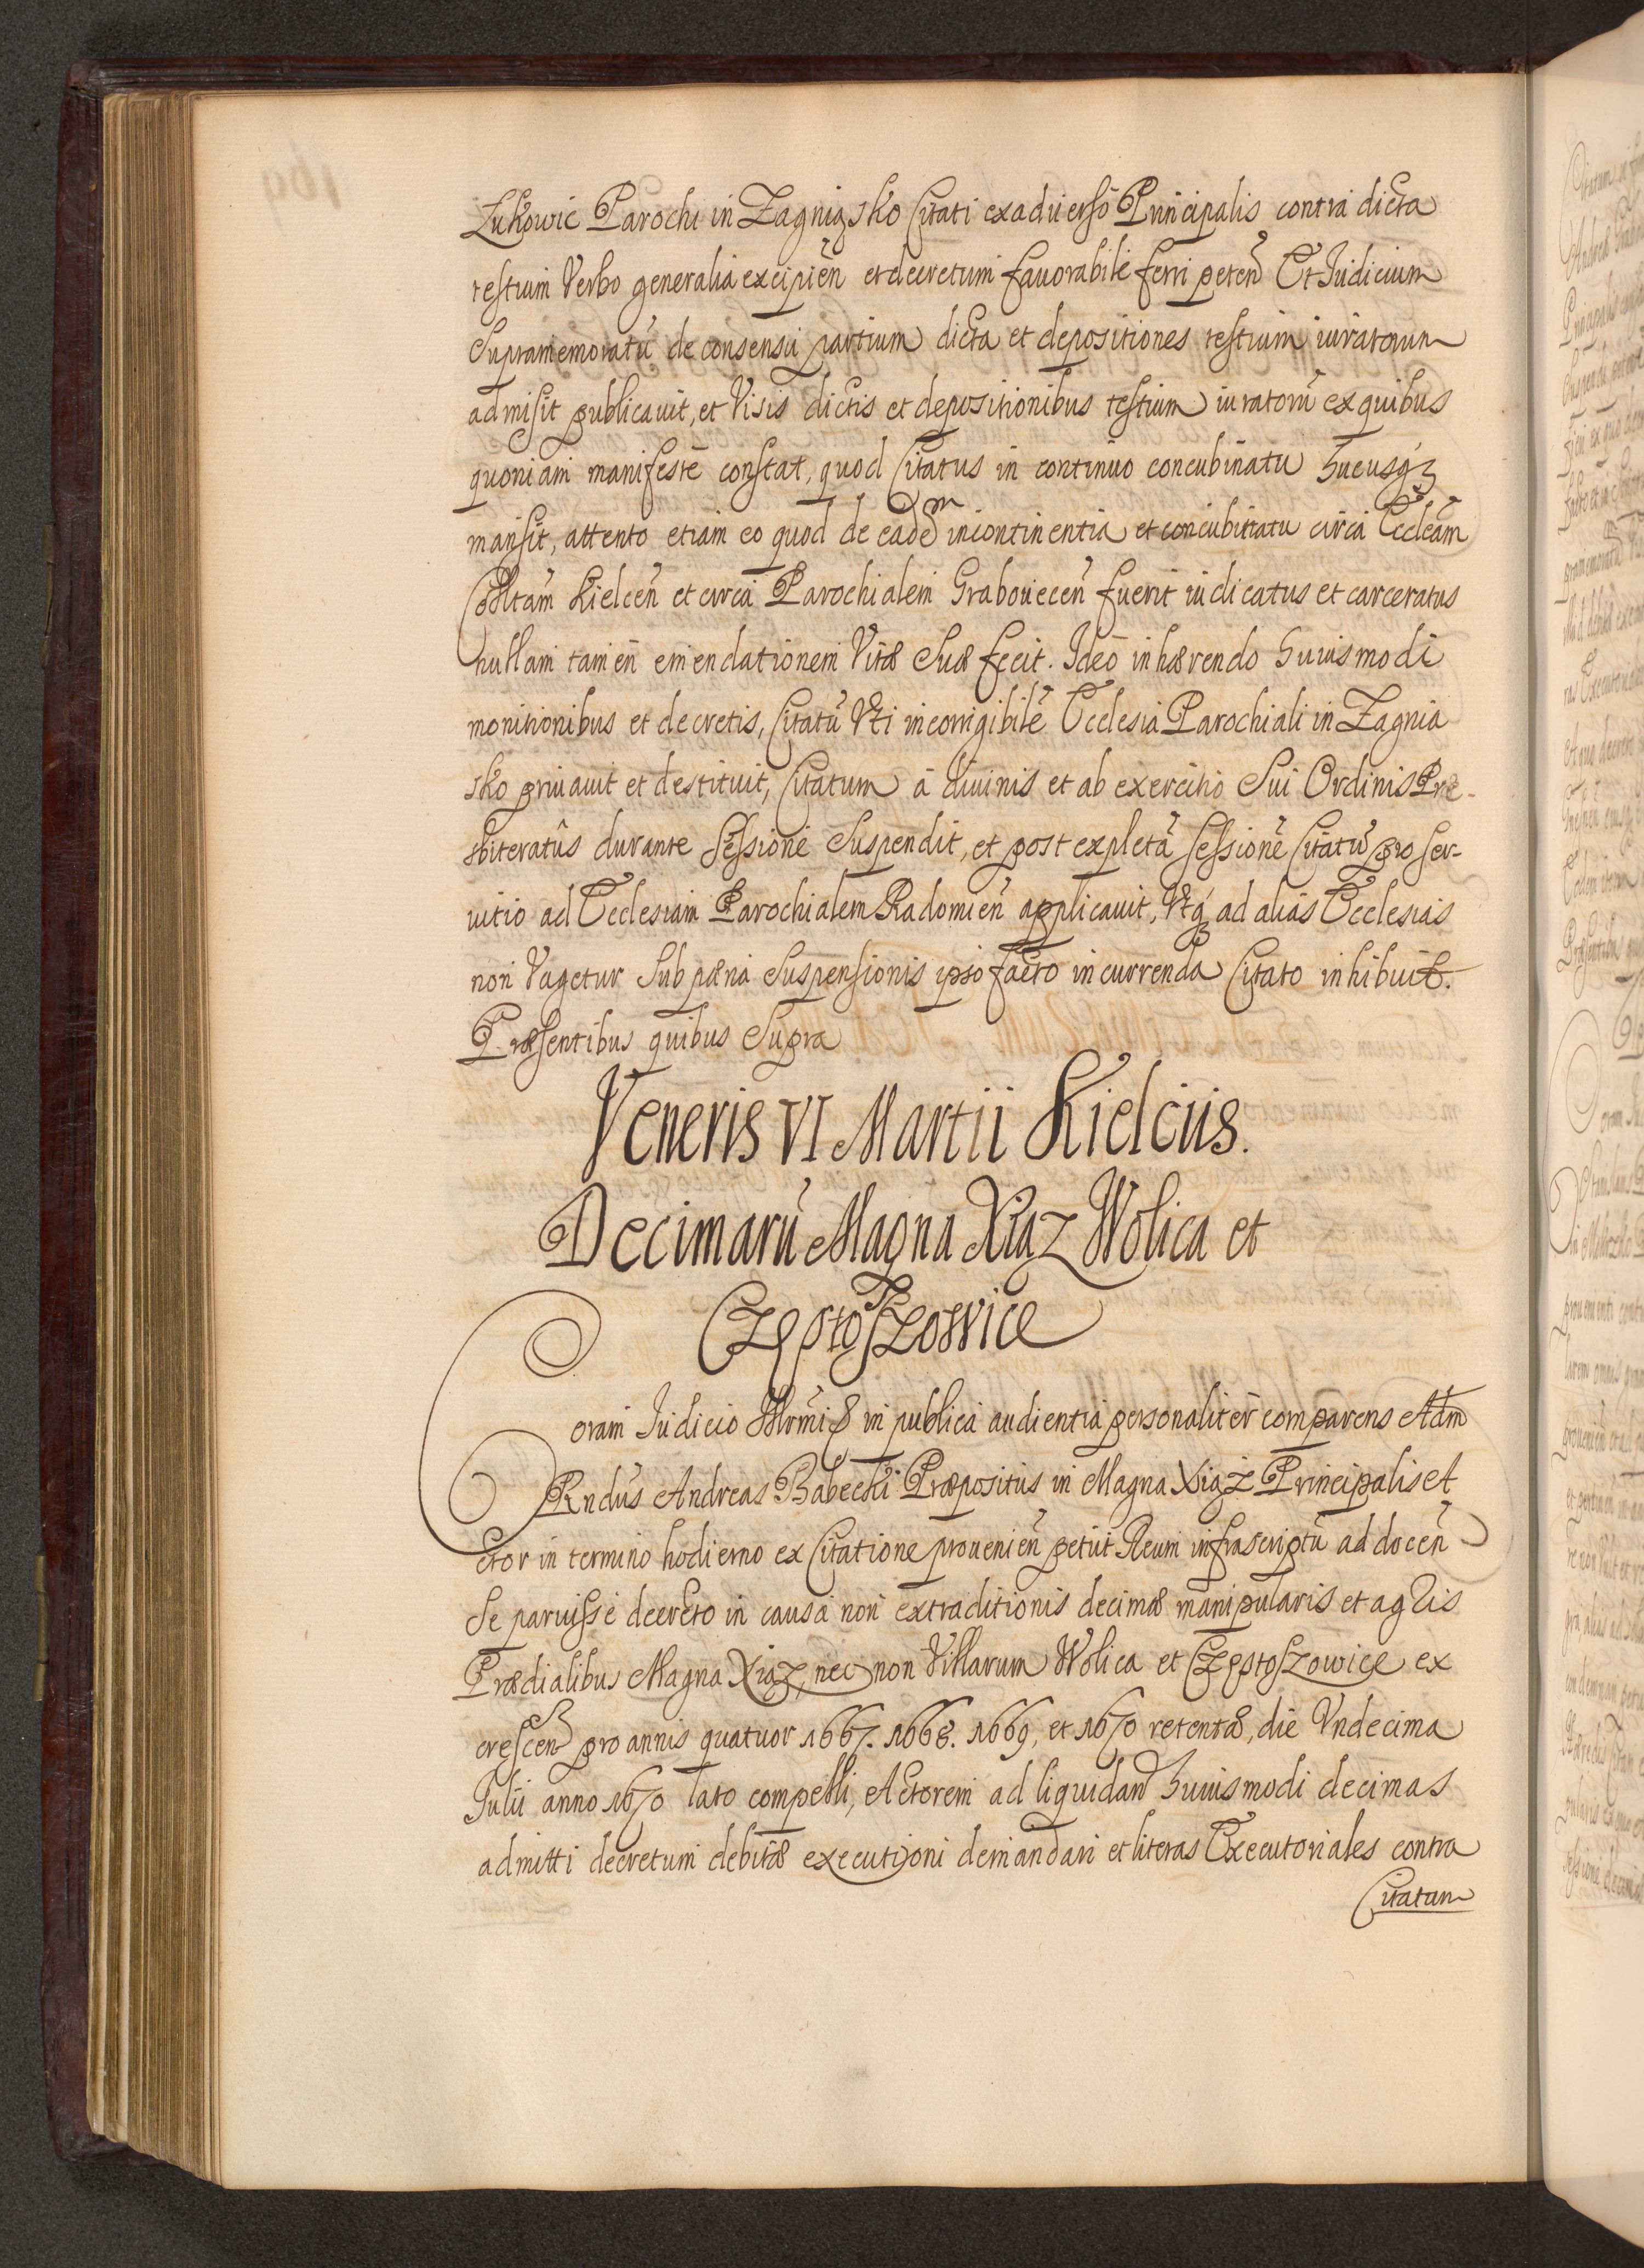 Zukowic Parochi in Zagnięsko Citati exaduersó Principalis contra dicta
testium Verbo generalia excipień et decretum fauorabile ferri peteń Et Iudicium
Supramemoratũ de consensu partium dicta et depositiones testium iuratorum
admisit publicauit, et Visis dictis et depositionibus testium iuratorũ ex quibus
quoniam manifestè constat, quod Citatus in continuo concubinatu hucusq́ꝫ
mansit, attento etiam eo quod de eadem incontinentia et concubinatu circa Eccleãm
Colltãm Kielceń et circa Parochialem Grabouieceń fuerit iudicatus et carceratus
nullam tamen emendationem Vitæ Suæ fecit. Ideo inhærendo huiusmodi
monitionibus et decretis, Citatũ Vti incorrigibilẽ Ecclesia Parochiali in Zagnia
sko priuauit et destituit, Citatum á diuinis et ab exercitio Sui Ordinis Pre-
sbiteratûs durante Sessione Suspendit, et post expletã sessionẽ Citatũ pro ser-
uitio ad Ecclesiam Parochialem Radomień applicauit, Vtq́ꝫ ad alias Ecclesias
non Vagetur Sub pæna Suspensionis ipso facto incurrenda Citato inhibuit.
Præsentibus quibus Supra
Veneris VI Martii Kielciis.
Decimarũ Magna Xiąz Wolica et
Częstoszowice
Coram Iudicio Illrmi in publica audientia personaliter comparens Adm
Rndus Andreas Babecki Præpositus in Magna Xiąż Principalis et A
ctor in termino hodierno ex Citatione prouenień petiit Reum infrascriptũ ad doceń
Se paruisse decreto in causa non extraditionis decimæ manipularis et agris
Prædialibus Magna Xiąz, nec non Villarum Wolica et Częstoszowice ex
cresceń pro annis quatuor 1667. 1668. 1669, et 1670 retentæ, die Vndecima
Iulii anno 1670 lato compelli, Actorem ad liquidand huiusmodi decimas
admitti decretum debitæ executioni demandari et literas Executoriales contra
Citatum